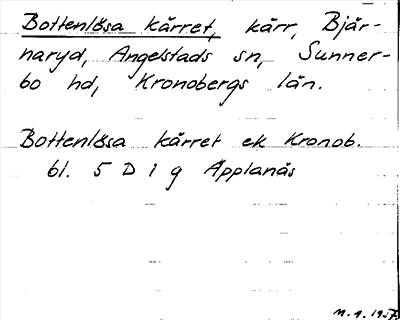 Bottenlösa kärret, kärr, Bjär-
naryd, Angelstads sn, Sunner-
bo hd, Kronobergs län.
Bottenlösa kärret ek Kronob.
bl. 5 D 1 g Äpplanäs